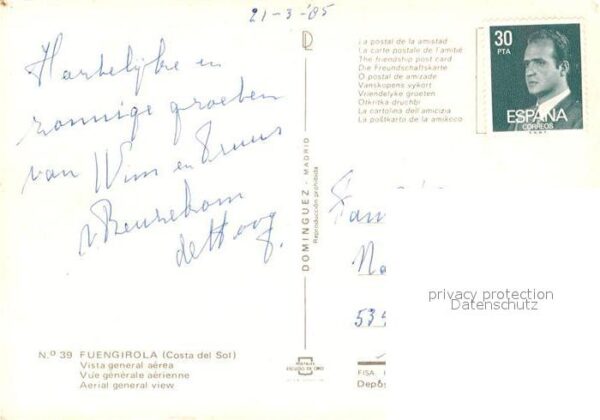 21-3-'85
Hartelijke en
zonnige groeten
van Wim en Truus
de Hoog.
La postal de la amistad
La carte postale de l'amitié
The friendship post card
Die Freundschaftskarte
O postal de amizade
Vanskopens vykort
Vriendelyke groeten
Otkritka druchbi
La cartolina dell'amicizia
La poŝtkarto de la amikeco
30
PTA
ESPAÑA
CORREOS
DOMINGUEZ - MADRID
Reproducción prohibida
Fam
534
privacy protection
Datenschutz
N.º 39 FUENGIROLA (Costa del Sol)
Vista general aérea
Vue générale aérienne
Aerial general view
FISA.
Depós